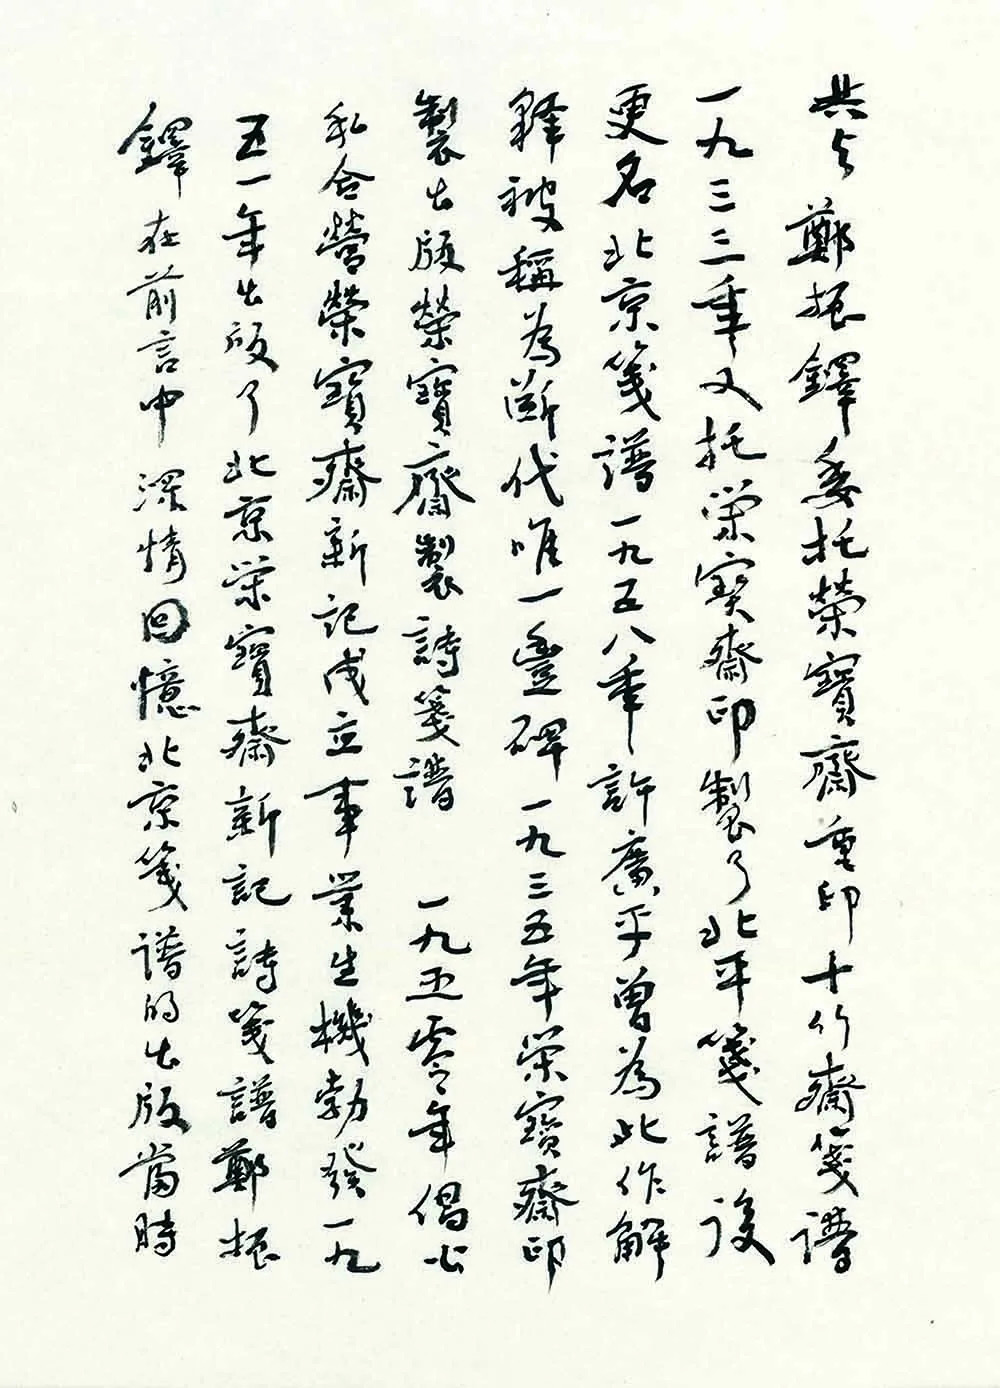 共与鄭振鐸委托榮寶齋重印十竹齋箋譜
一九三三年又托荣寳齋印製了北平箋譜後
更名北京箋譜一九五八年許廣平曾為此作解
释被稱為断代唯一豐碑一九三五年荣寳齋印
製出版榮寳齋製詩箋譜 一九五零年倡公
私合營榮寳齋新記成立事業生機勃發一九
五一年出版了北京荣寳齋新記詩箋譜鄭振
鐸在前言中深情回憶北京箋譜的出版當時